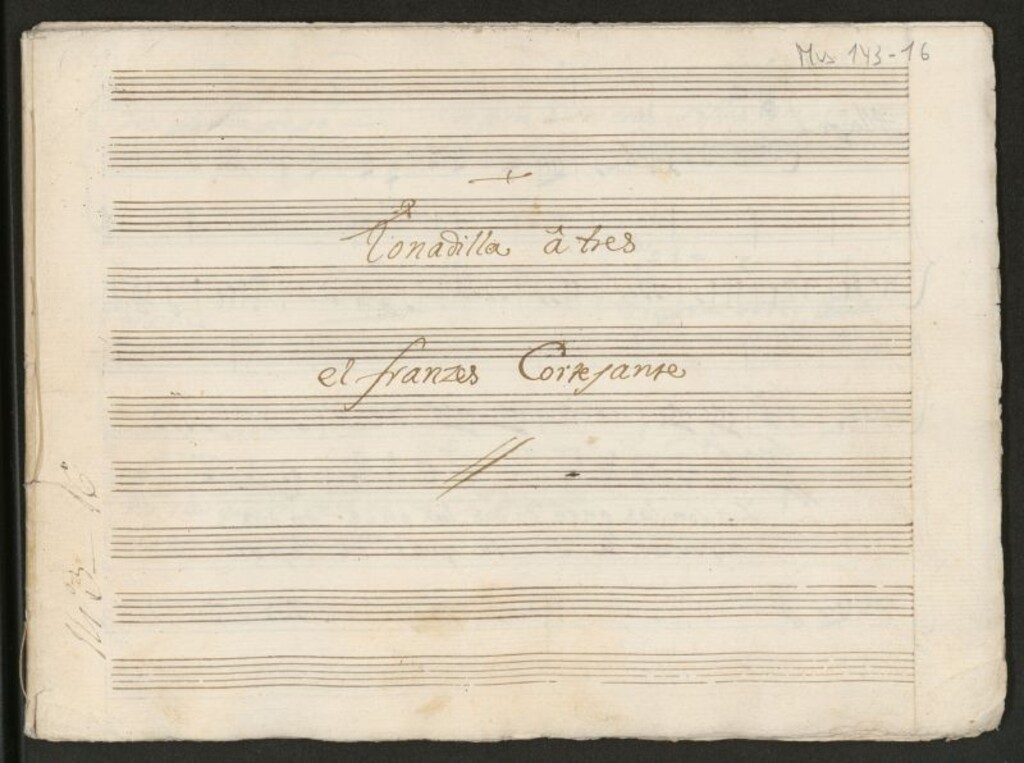 Mus 143-16
Tonadilla â tres
el franzes Cortejante
143-16